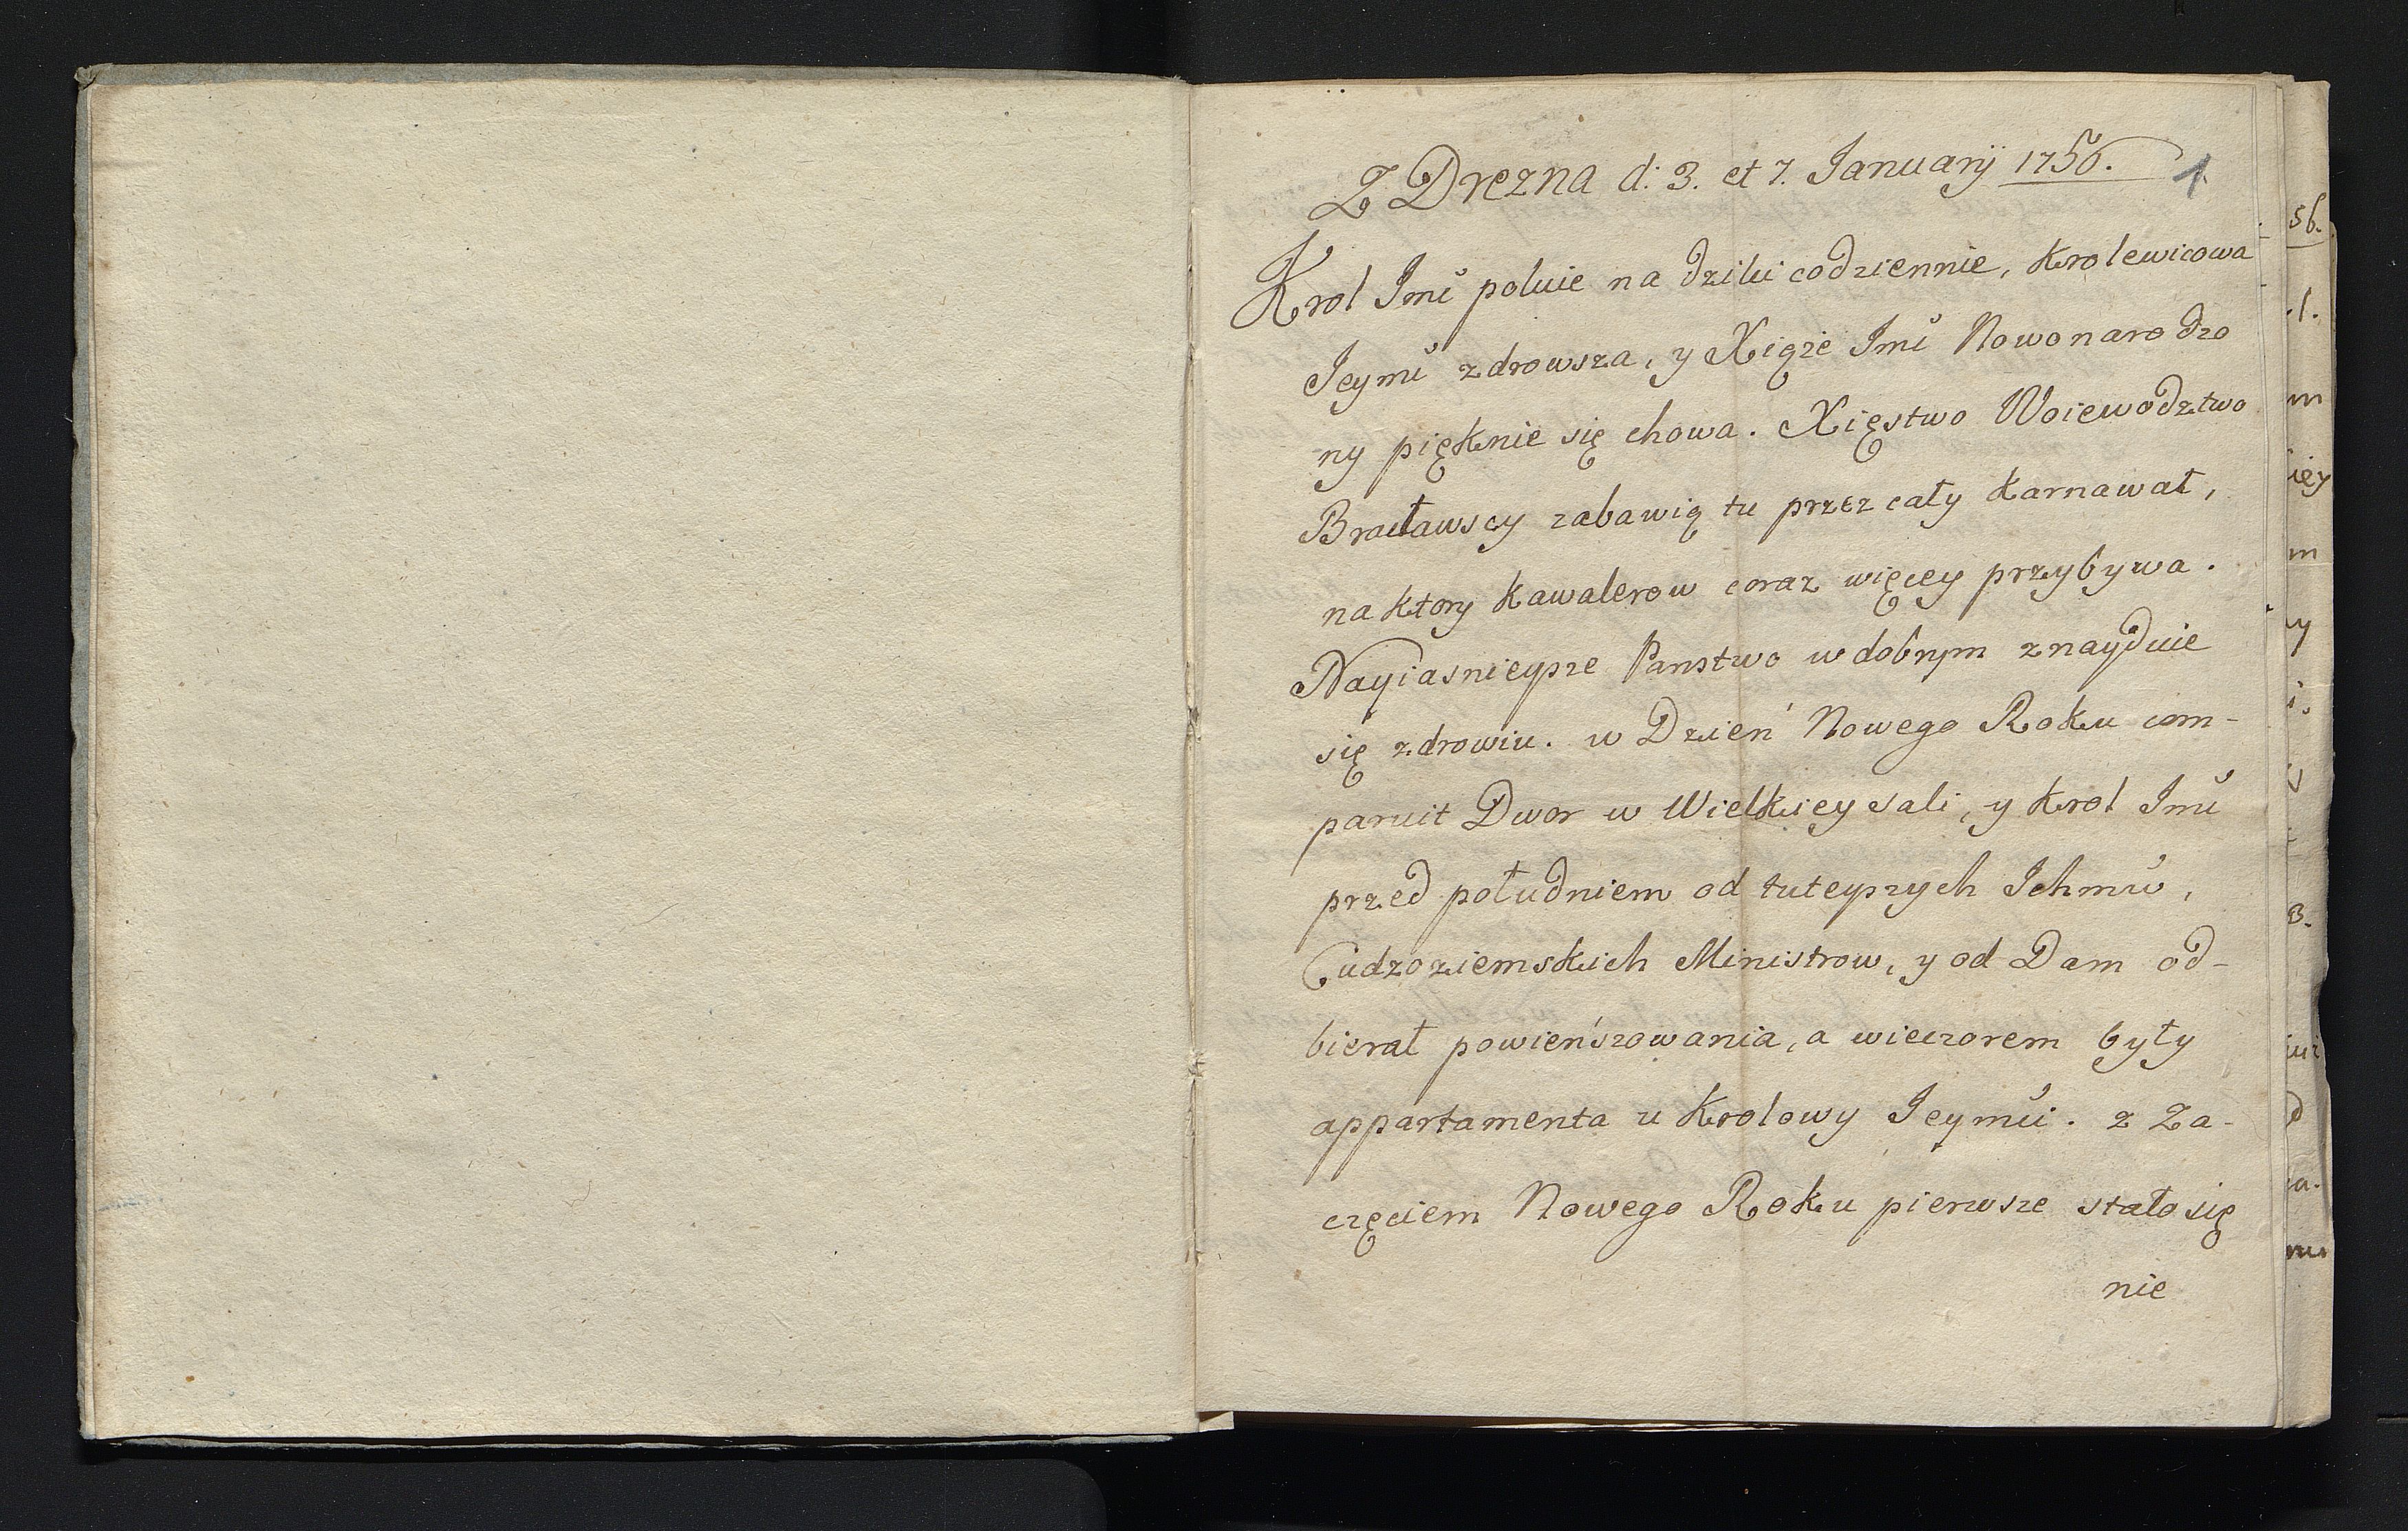 Z Drezna d: 3. et 7. Januarij 1756.
1.
Krol Jmć poluie na dziki codziennie, Krolewicowa
Jeymć zdrowsza, y Xiąże Jmć Nowonarodzo
ny pięknie się chowa. Xięstwo Woiewodztwo
Bracławscy zabawią tu przez cały karnawał,
na ktory kawalerow coraz więcey przybywa.
Nayiasnieysze Panstwo w dobrym znayduie
się zdrowiu. w Dzień Nowego Roku com-
paruit Dwor w Wielkiey sali, y Krol Jmć
przed południem od tuteyszych Ichmćw,
Cudzoziemskich Ministrow, y od Dam od-
bierał powieńszowania, a wieczorem były
appartamenta u Krolowy Jeymći. z Za-
częciem Nowego Roku pierwsze stało się
nie